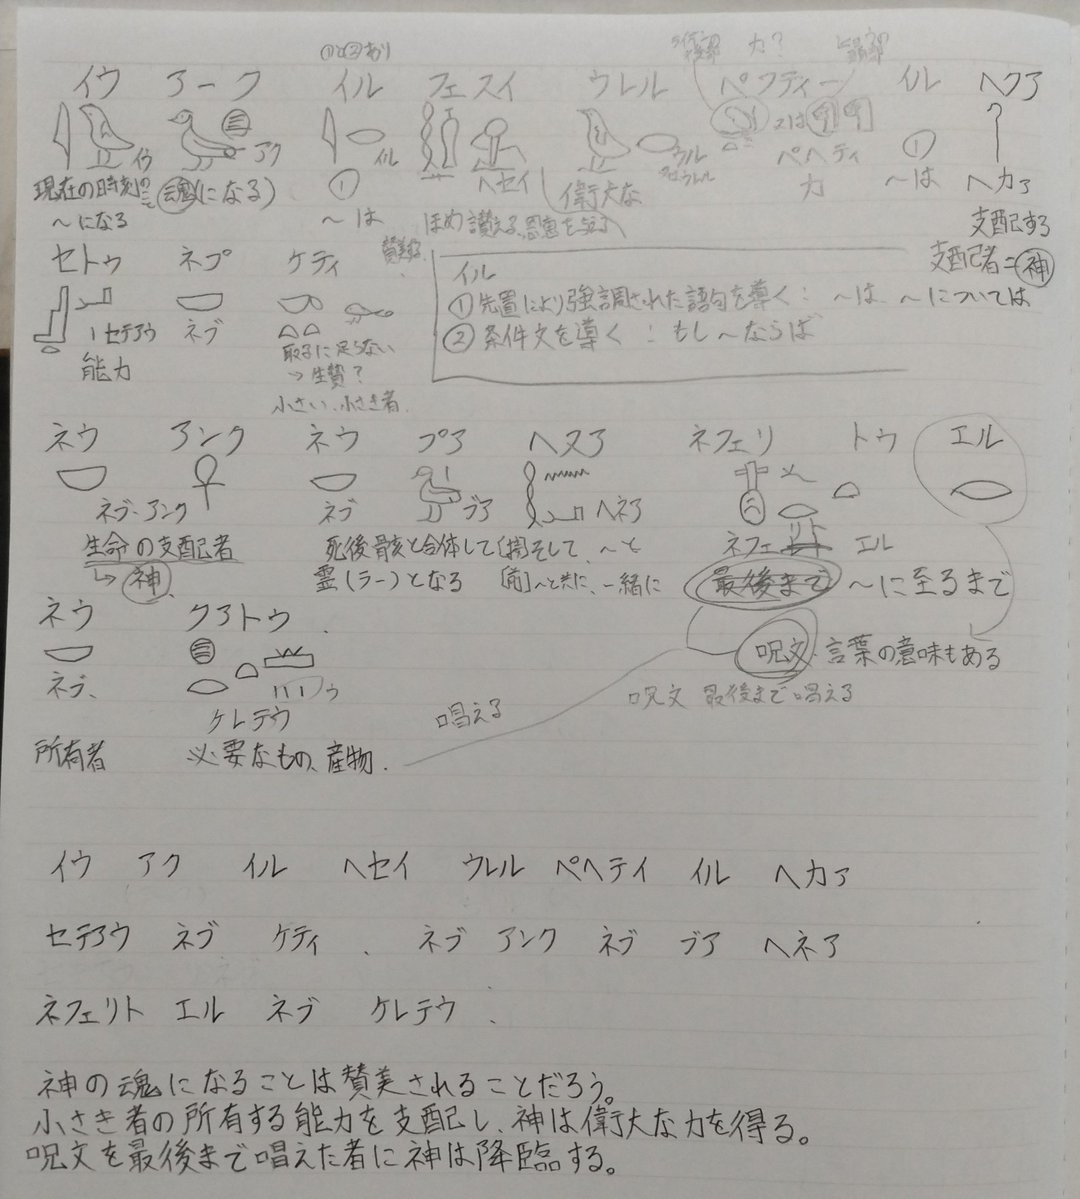 ①と②あり 力?
イウ アーク イル フェスイ ウレル ペフティー イル ヘクア
イウ アク イル ヘセイ ウル ウレル 又は ペヘティ ① ヘカア
現在の時刻に 魂(になる) ① 偉大な 力 〜は
〜になる 〜は ほめ讃える、恩恵を与える 支配する
賛美する 支配者=神
セトゥ ネブ ケティ
セテアウ ネブ
能力 取るに足らない
→生贄?
小さい、小さき者
イル
①先置により強調された語句を導く:〜は、〜については
②条件文を導く:もし〜ならば
ネウ アンク ネウ ブア ヘヌア ネフェリ トゥ エル
ネブ・アンク ネブ ブア ヘネア ネフェリト エル
生命の支配者 死後骸と合体して [接]そして 〜と 最後まで 〜に至るまで
→神 霊(ラー)となる [前]〜と共に、一緒に
ネウ クアトゥ
呪文 言葉の意味もある
ネブ、 ゥ
ケレテウ 唱える 呪文 最後まで唱える
所有者 必要なもの、産物.
イウ アク イル ヘセイ ウレル ペヘテイ イル ヘカア
セテアウ ネブ ケティ . ネブ アンク ネブ ブア ヘネア
ネフェリト エル ネブ ケレテウ .
神の魂になることは賛美されることだろう。
小さき者の所有する能力を支配し、神は偉大な力を得る。
呪文を最後まで唱えた者に神は降臨する。